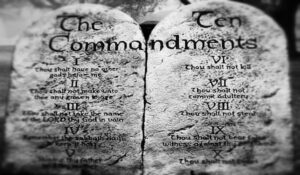 The Ten
Commandments
I
Thou shalt have no other
gods before me
II
Thou shalt not make unto
thee any graven image
III
Thou shalt not take the name
of the LORD thy God in vain
IV
Remember the sabbath
keep it holy
thy father
VI
Thou shalt not kill
VII
Thou shalt not
commit adultery
VIII
Thou shalt not steal
IX
Thou shalt not bear false
witness against thy
Thou shalt not